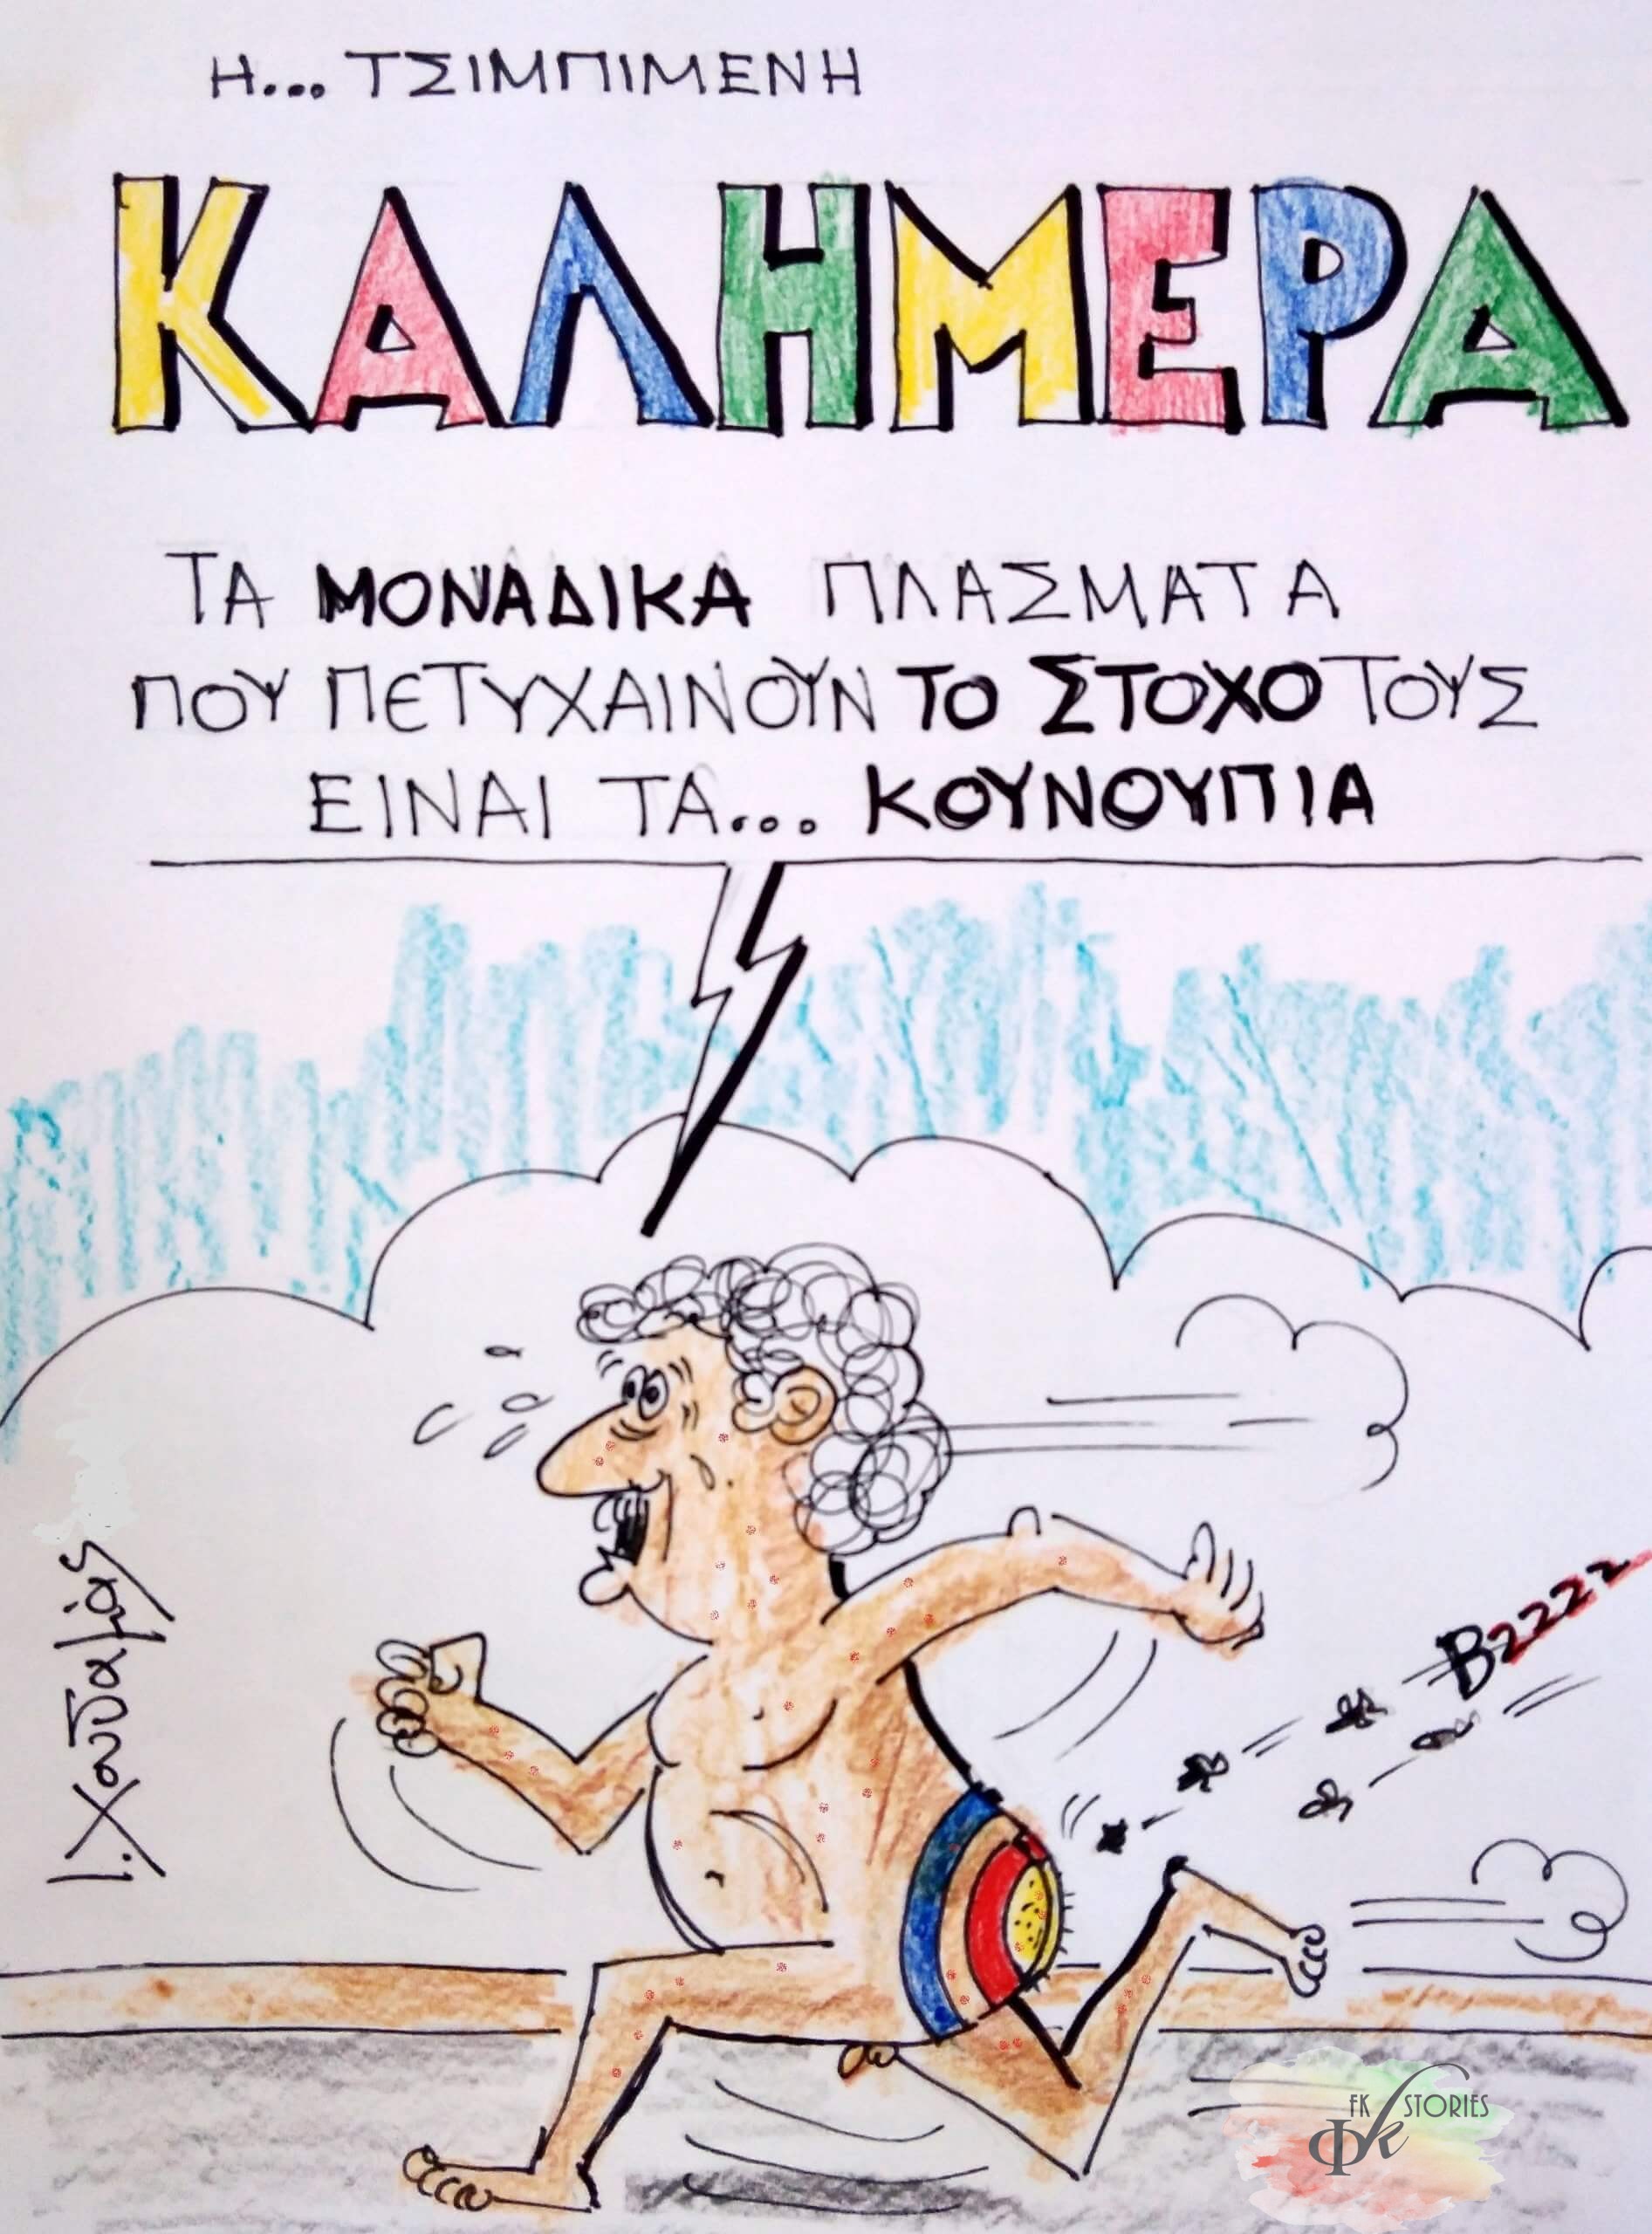 Η... ΤΣΙΜΠΙΜΕΝΗ
ΚΑΛΗΜΕΡΑ
ΤΑ ΜΟΝΑΔΙΚΑ ΠΛΑΣΜΑΤΑ
ΠΟΥ ΠΕΤΥΧΑΙΝΟΥΝ ΤΟ ΣΤΟΧΟ ΤΟΥΣ
ΕΙΝΑΙ ΤΑ... ΚΟΥΝΟΥΠΙΑ
Bzzzz
FK STORIES
Φk